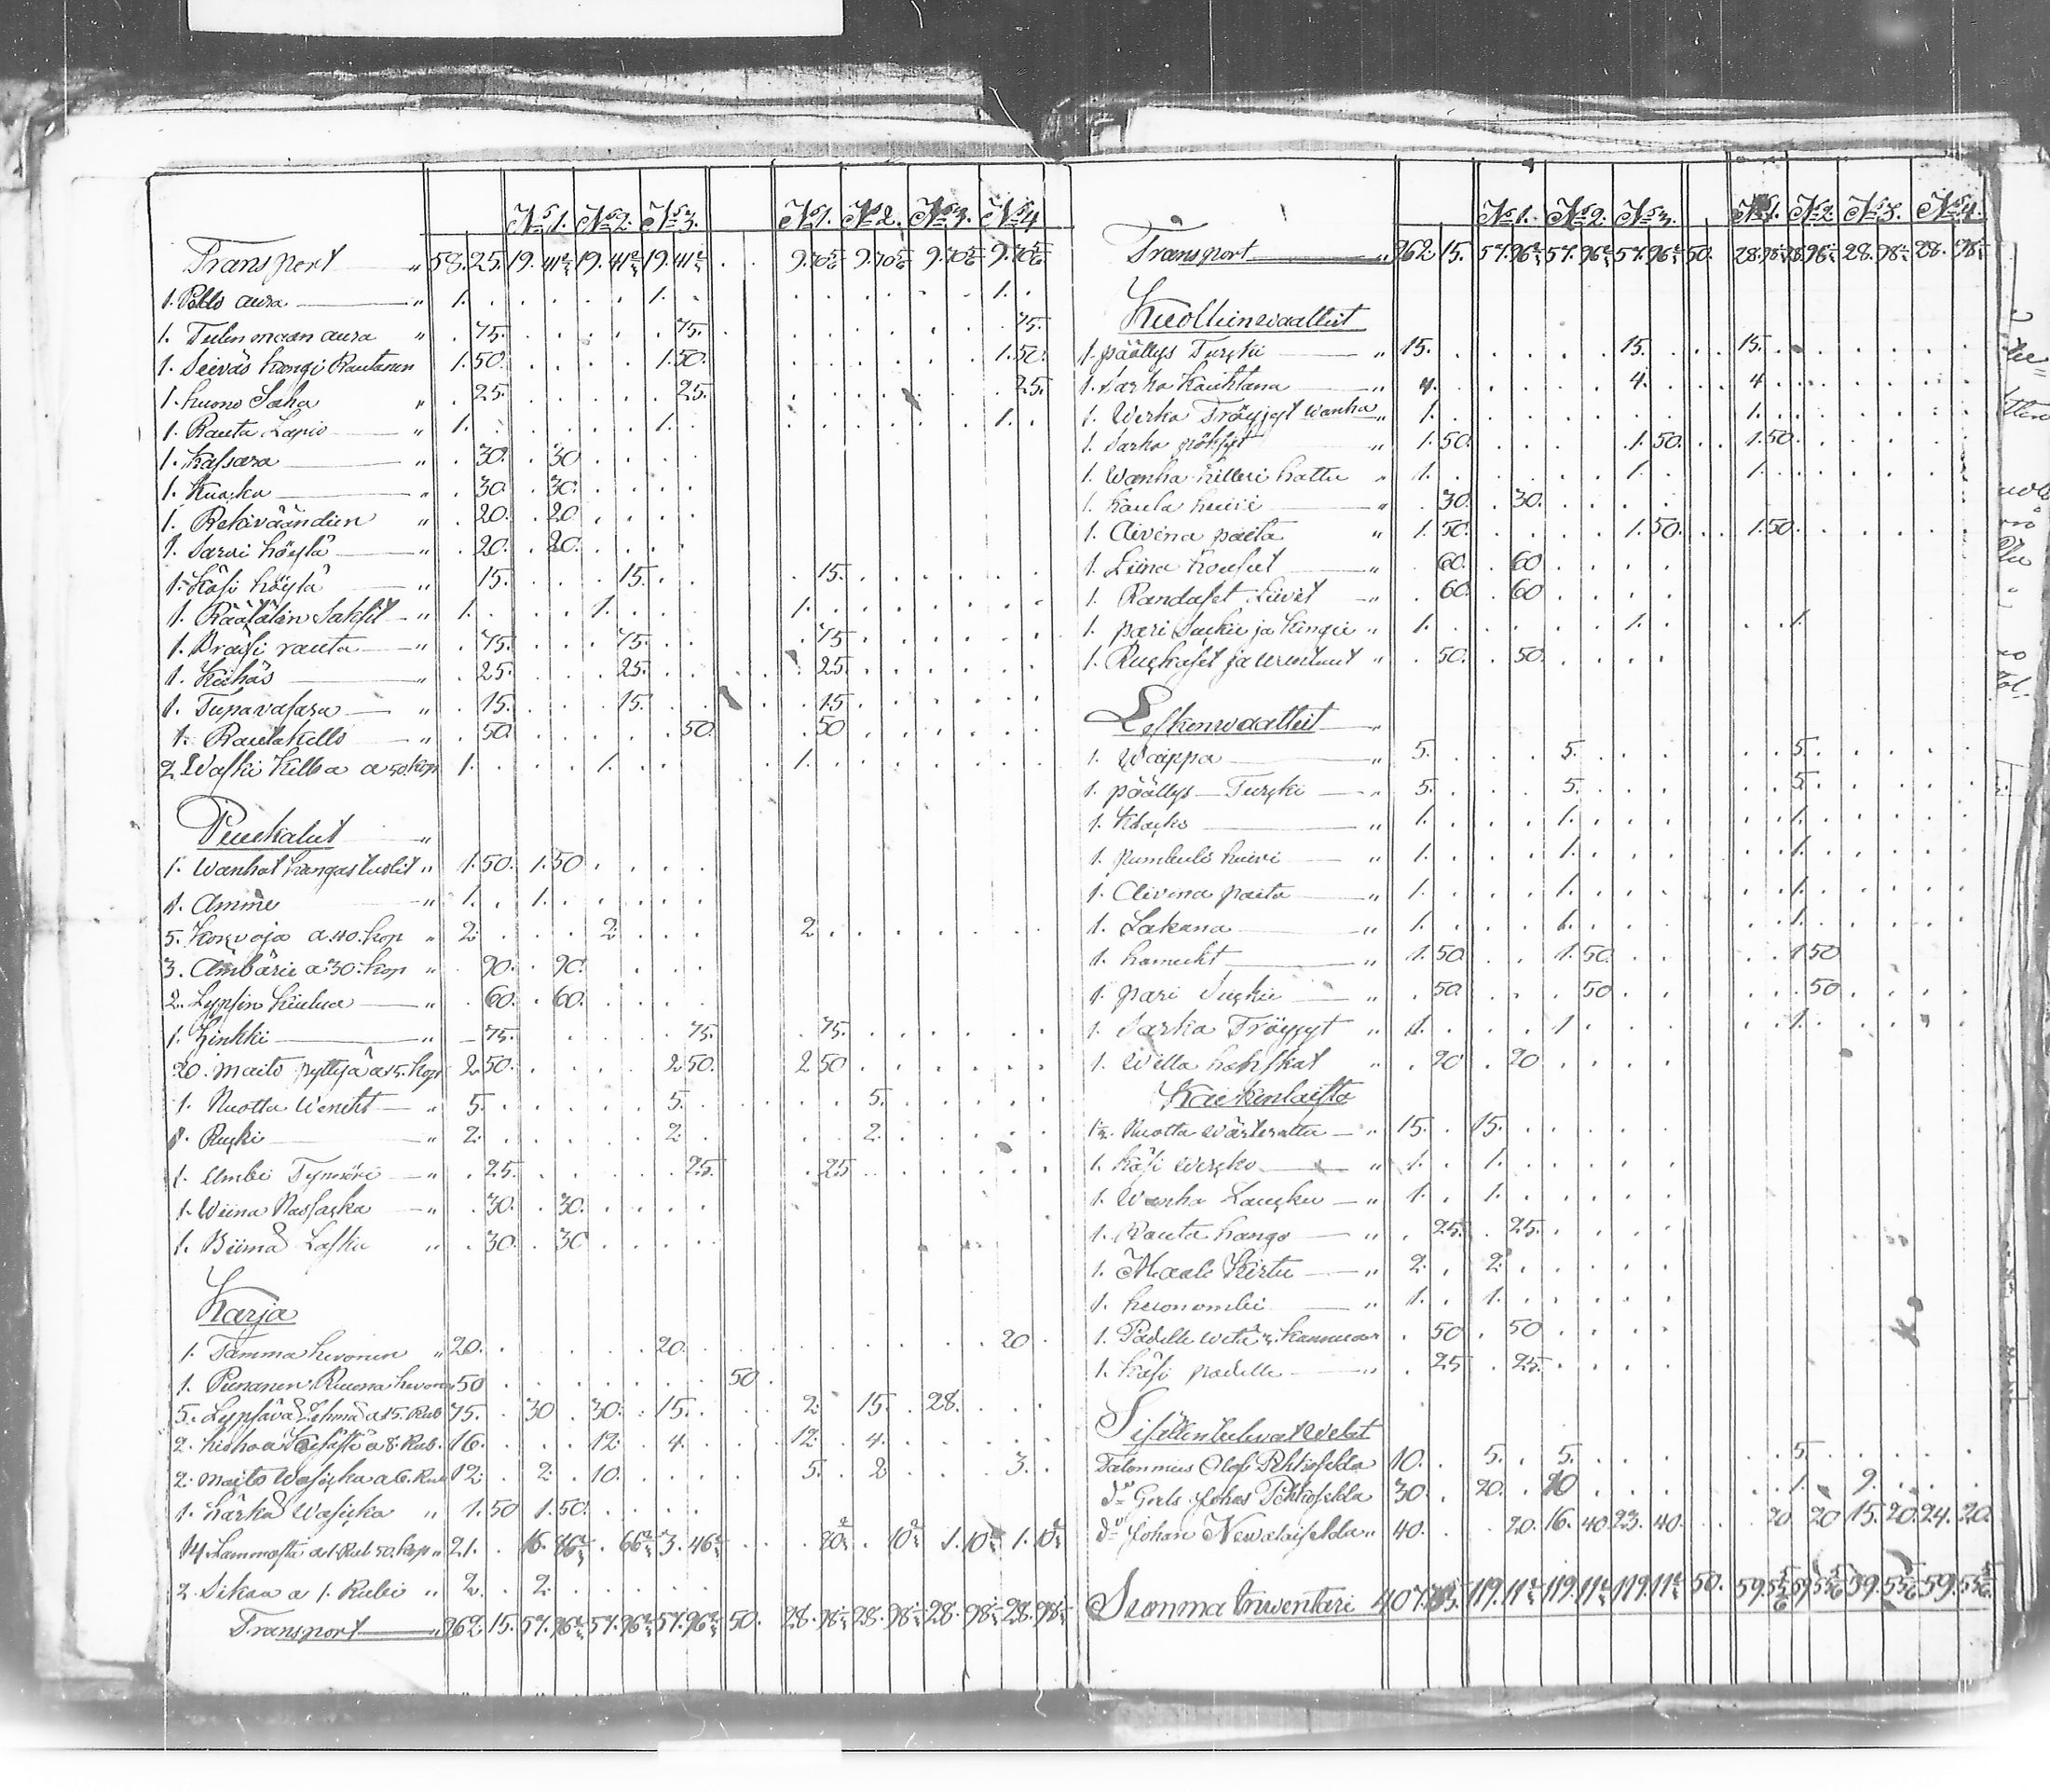 No 1. No 2. No 3. No 1. No 2. No 3. No 4
Transport " 58. 25. 19. 41 2/3 19. 41 2/3 19. 41 2/3 . . 9. 70 5/6 9. 70 5/6 9. 70 5/6 9. 70 5/6
1. Pello aura " 1. 1. 1.
1. Tulen maan aura " 75. 75. 75.
1. Seiväs kangi Rautanen 1. 50. 1. 50. 1. 50.
1. huono Saha " 25. 25. 25.
1. Rauta Lapio " 1. 1. 1.
1. Kassara " 30. 30
1. Kuocka " 30 30.
1. Rekiväändien " 20. 20
1. Sarvi höylä " 20. 20.
1. Käsi höylä " 15. 15. 15.
1. Räätälin Saksit " 1. 1. 1.
1. Präsi rauta " 75. 75. 75
1. Kiihäs " 25. 25. 25.
1. Tupavasara " 15. 15. 15
1. Rautakello " 50. 50. 50
2 Waski Kelloa a 50. kop 1. 1. 1.
Puukalut "
1. Wanhat kangastuolit " 1. 50. 1. 50.
1. Amme " 1. 1.
5. Korvoja a 40. kop " 2. 2. 2.
3. Ämbärii a 30. kop " 90. 90.
2. Lypsin kiulua " 60. 60.
1. Kinkki " 75. 75. 75.
20. maito pyttyjä a 15. kop 2 50. 2 50. 2 50.
1. Nuotta Weneht " 5. 5. 5.
1. Rucki " 2. 2. 2.
1. Umbi Tynnöri " 25. 25. 25
1. Wiina Nassacka " 30. 30.
1. Biimä Lasku " 30. 30
Karja
1. Tamma hevonen " 20. 20. 20
1. Punanen Ruuna hevonen 50 50.
5. Lypsävä Lehmä a 15. Rub 75. 30 30. 15. 2. 15. 28.
2. hiehoa a 8. Rub. 16. 12. 4. 12. 4.
2. maito Wasicka a 6. Rub 12. 2. 10. 5. 2 3.
1. härkä Wasicka " 1. 50 1. 50.
14 Lammasta a 1 Rub 50. kop " 21. 16. 86 2/3 . 66 2/3 3. 46 2/3 . 20 2/3 . 10 2/3 1. 10 2/3 1. 10 2/3
2 Sikaa a 1. Rubi " 2. 2.
Transport " 262. 15. 57. 96 2/3 57. 96 2/3 57. 96 2/3 50. 28. 98 1/3 28. 98 1/3 28. 98 1/3 28. 98 1/3
No 1. No 2. No 3. No 1. No 2. No 3. No 4.
Transport " 262 15. 57. 96 2/3 57. 96 2/3 57. 96 2/3 50. 28. 98 1/3 28. 98 1/3 28. 98 1/3 28. 98 1/3
Kuollein waatteet
1. päällys Turcki " 15. 15. 15.
1. Sarka kauhtana " 4. 4. 4
1. Werka Tröyjyt wanha " 1. 1.
1. Sarka pöksyt " 1. 50. 1. 50. 1. 50.
1. Wanha killeri hattu " 1. 1. 1.
1. kaula huivi " 30. 30.
1. Aivina paita " 1. 50. 1. 50. 1. 50.
1. Liina housut " 60. 60
1. Randaset Liivit " 60. 60
1. pari Suckii ja kengii " 1. 1. 1.
1. Ruckaset ja " 50. 50.
Leskenwaatteet "
1. Waippa " 5. 5. 5.
1. päällys Turcki " 5. 5. 5.
1. Klacko " 1. 1. 1.
1. Pumbuli huivi " 1. 1. 1.
1. Aivina paita " 1. 1. 1.
1. Lakana " 1. 1. 1.
1. hameeht " 1. 50. 1. 50. 1 50
1. pari Suckii " 50. 50. 50
1. Sarka Tröyjyt " 1. 1 1.
1. Willa hahskat " 20 20
Kaikenlaista
1/2. Nuotta " 15. 15.
1. Käsi wercko " 1. 1.
1. Wanha Laucku " 1. 1.
1. Rauta hango " 25. 25.
1. Maali Kirtu " 2. 2.
1. huonombi " 1. 1.
1. Padelli wetä 2. kannua " 50. 50
1. Käsi padelli " 25. 25.
Sisällentulevat Welat
Talonmies Olof Pehkoselda 10. 5. 5. 5.
do Gorls Johas Pehkoselda 30. 20. 10 1. 9.
do Johan Newalaiselda " 40. 20. 16. 40 23. 40. 20 20 15. 20 24. 20
Summa Inventari 407. 35. 119. 11 2/3 119. 11 2/3 119. 11 2/3 50. 59. 55 5/6 59. 55 5/6 59. 55 5/6 59. 55 5/6